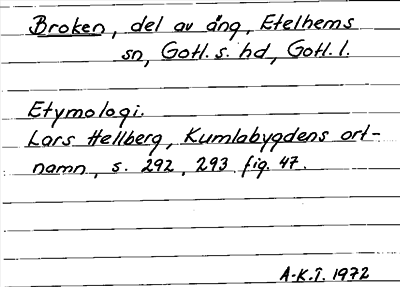 Broken, del av äng, Etelhems
sn, Gotl. s. hd, Gotl. l.
Etymologi.
Lars Hellberg, Kumlabygdens ort-
namn, s. 292, 293 fig. 47.
A-K.T. 1972